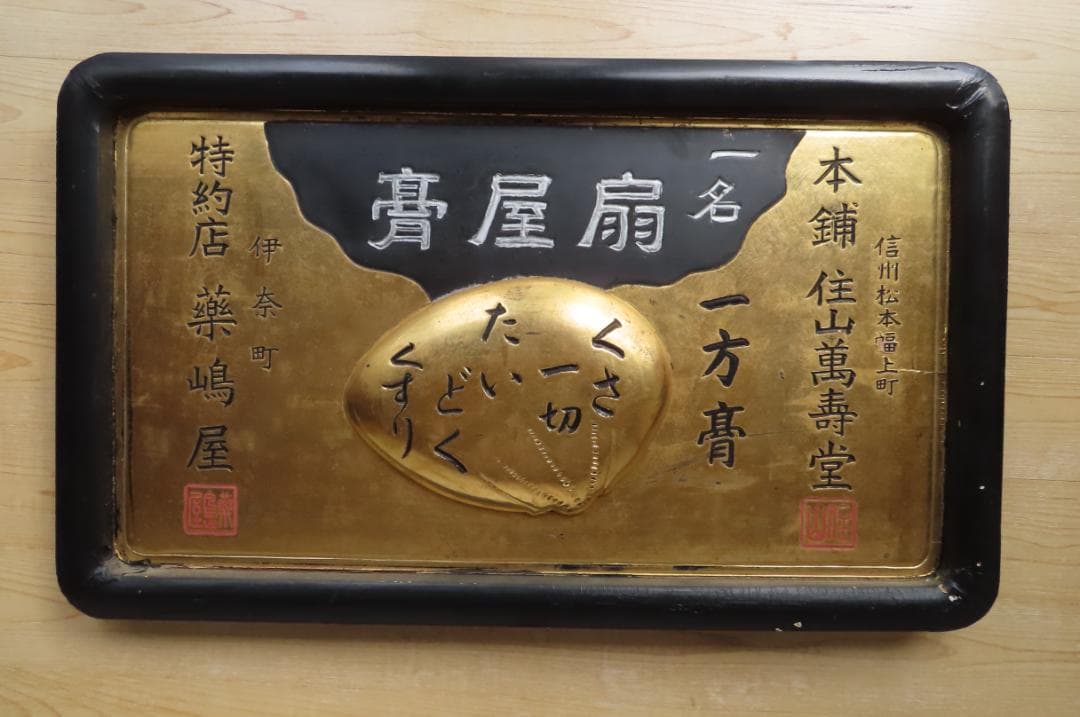 信州松本幅上町
本鋪 住山萬壽堂
一名
扇屋膏
一方膏
くさ
一切
たい
どく
くすり
伊奈町
特約店 藥嶋屋